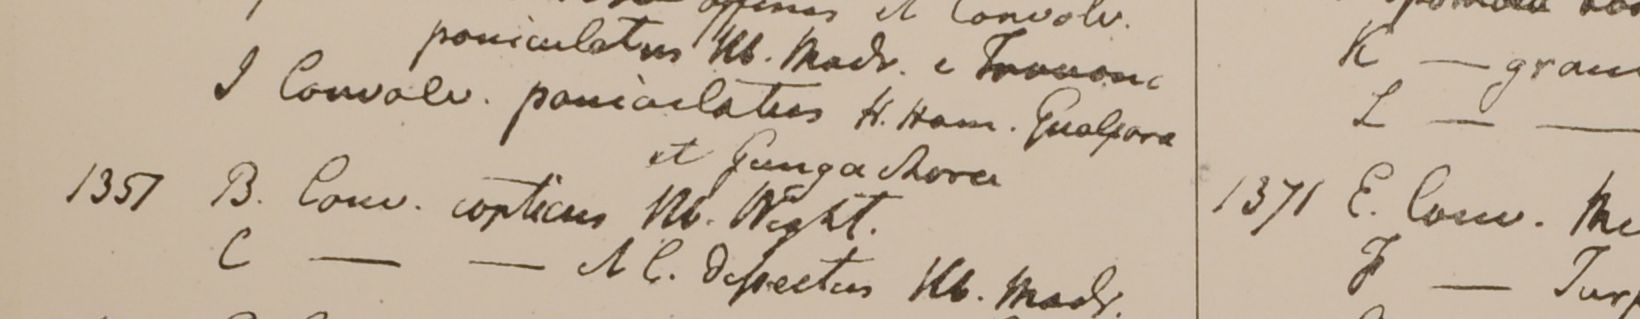 affinis et Convolv.
paniculatus Hb. Madr. e
I Convolv. paniculatus H. Ham. Gualpara
et Gungachora
1357 B. Conv. copticus Hb. Wight.
C — — et C. dissectus Hb. Madr.
K — gran
L — —
1371 E. Conv. Me
F — Turp